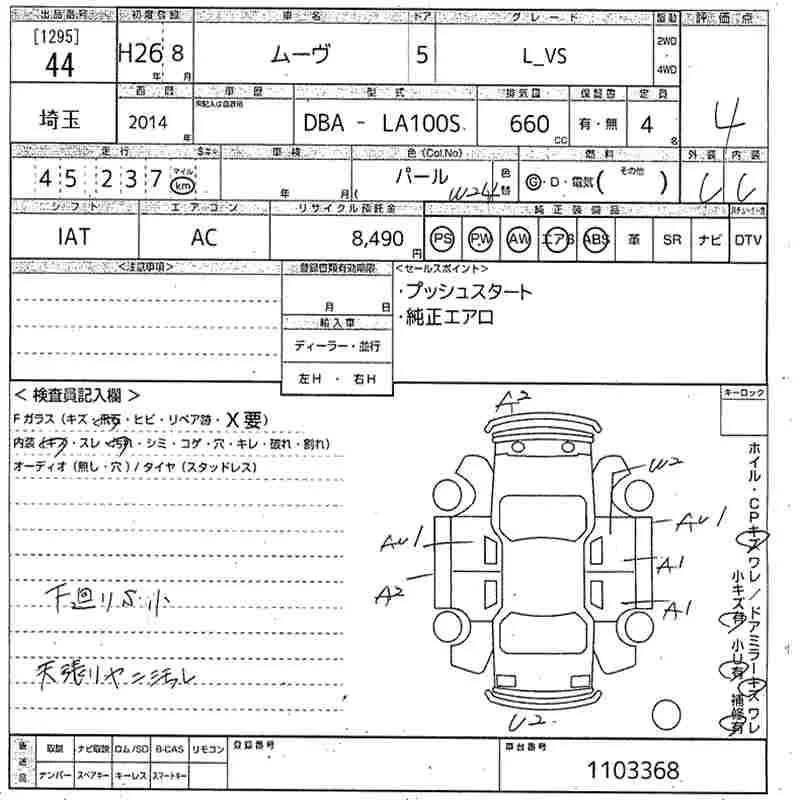 出品番号 初度登録 車名 ドア グレード 駆動 評価点
[1295]
44 H26 8 ムーヴ 5 L_VS 2WD ・ 4WD
年 月
西暦 車歴 型式 排気量 保証書 定員
埼玉 2014 年 DBA - LA100S 660 CC 有・無 4 名 4
走行 車検 色(Col.No) 燃料 外装 内装
45237 マイル km 年 月( パール W24 色替 G・D・電気( その他 )
シフト エアコン リサイクル預託金 純正装備品
IAT AC 8,490 円 PS PW AW エアB ABS 革 SR ナビ DTV
<注意事項> 登録書類有効期限 <セールスポイント>
月 日 ・プッシュスタート
輸入車 ・純正エアロ
ディーラー・並行
左H ・ 右H
< 検査員記入欄 > キーロック
Fガラス(キズ・飛石・ヒビ・リペア跡・X要)
内装(キズ・スレ・汚れ・シミ・コゲ・穴・キレ・破れ・割れ)
オーディオ(無し・穴)/タイヤ(スタッドレス)
A2
W2
AU1 AU1
A1
A2 A1
U2
下廻りS小
天張りヤニ汚れ
ホイル・CPキズワレ/ドアミラーキズワレ
小キズ有 小U有 補修有
後送品 取説 ナビ取説 ロム/SD B-CAS リモコン 登録番号 車台番号
ナンバー スペアキー キーレス スマートキー 1103368